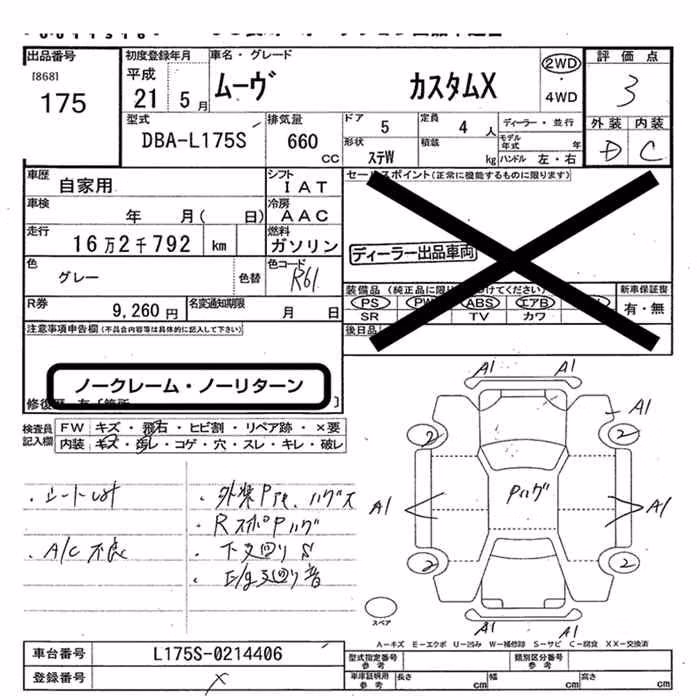 出品番号
[868]
175
初度登録年月
平成
21 5月
車名・グレード
ムーヴ カスタムX
2WD
・
4WD
評価点
3
外装 内装
D C
型式
DBA-L175S
排気量
660 CC
ドア 5
定員 4 人
形状 ステW
積載 kg
ディーラー・並行
モデル年式 年
ハンドル 左・右
車歴
自家用
シフト
IAT
車検 年 月( 日)
冷房
AAC
走行
16万2千792 km
燃料
ガソリン
色
グレー
色替
色コード
R61
R券 9,260円
名変通知期限 月 日
セールスポイント(正常に機能するものに限ります)
ディーラー出品車両
装備品(純正品に限り
けてください)
新車保証書
有・無
PS PW ABS エアB
SR TV カワ
後日品
注意事項申告欄(不具合内容等は具体的に記入して下さい)
ノークレーム・ノーリターン
検査員
記入欄
FW キズ・飛石・ヒビ割・リペア跡・×要
内装 キズ・汚レ・コゲ・穴・スレ・キレ・破レ
・A/C不良
・下廻りS
・E/g廻り音
A1 A1
A1
2 2
A1 A1
2 2
A1 A1
スペア
A-キズ E-エクボ U-凹み W-補修跡 S-サビ C-腐食 XX-交換済
車台番号 L175S-0214406
登録番号 ×
型式指定番号
参考
類別区分番号
参考
車庫証明用
参考
長さ cm 幅 cm 高さ cm